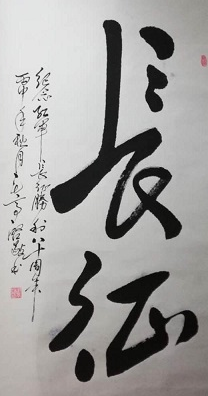 長征
纪念红军長征勝利八十周年
丙申年秋月 书